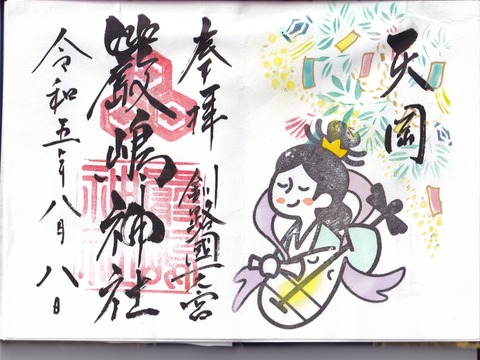 天岡
奉拝
釧路國一之宮
嚴嶋神社
令和五年八月八日